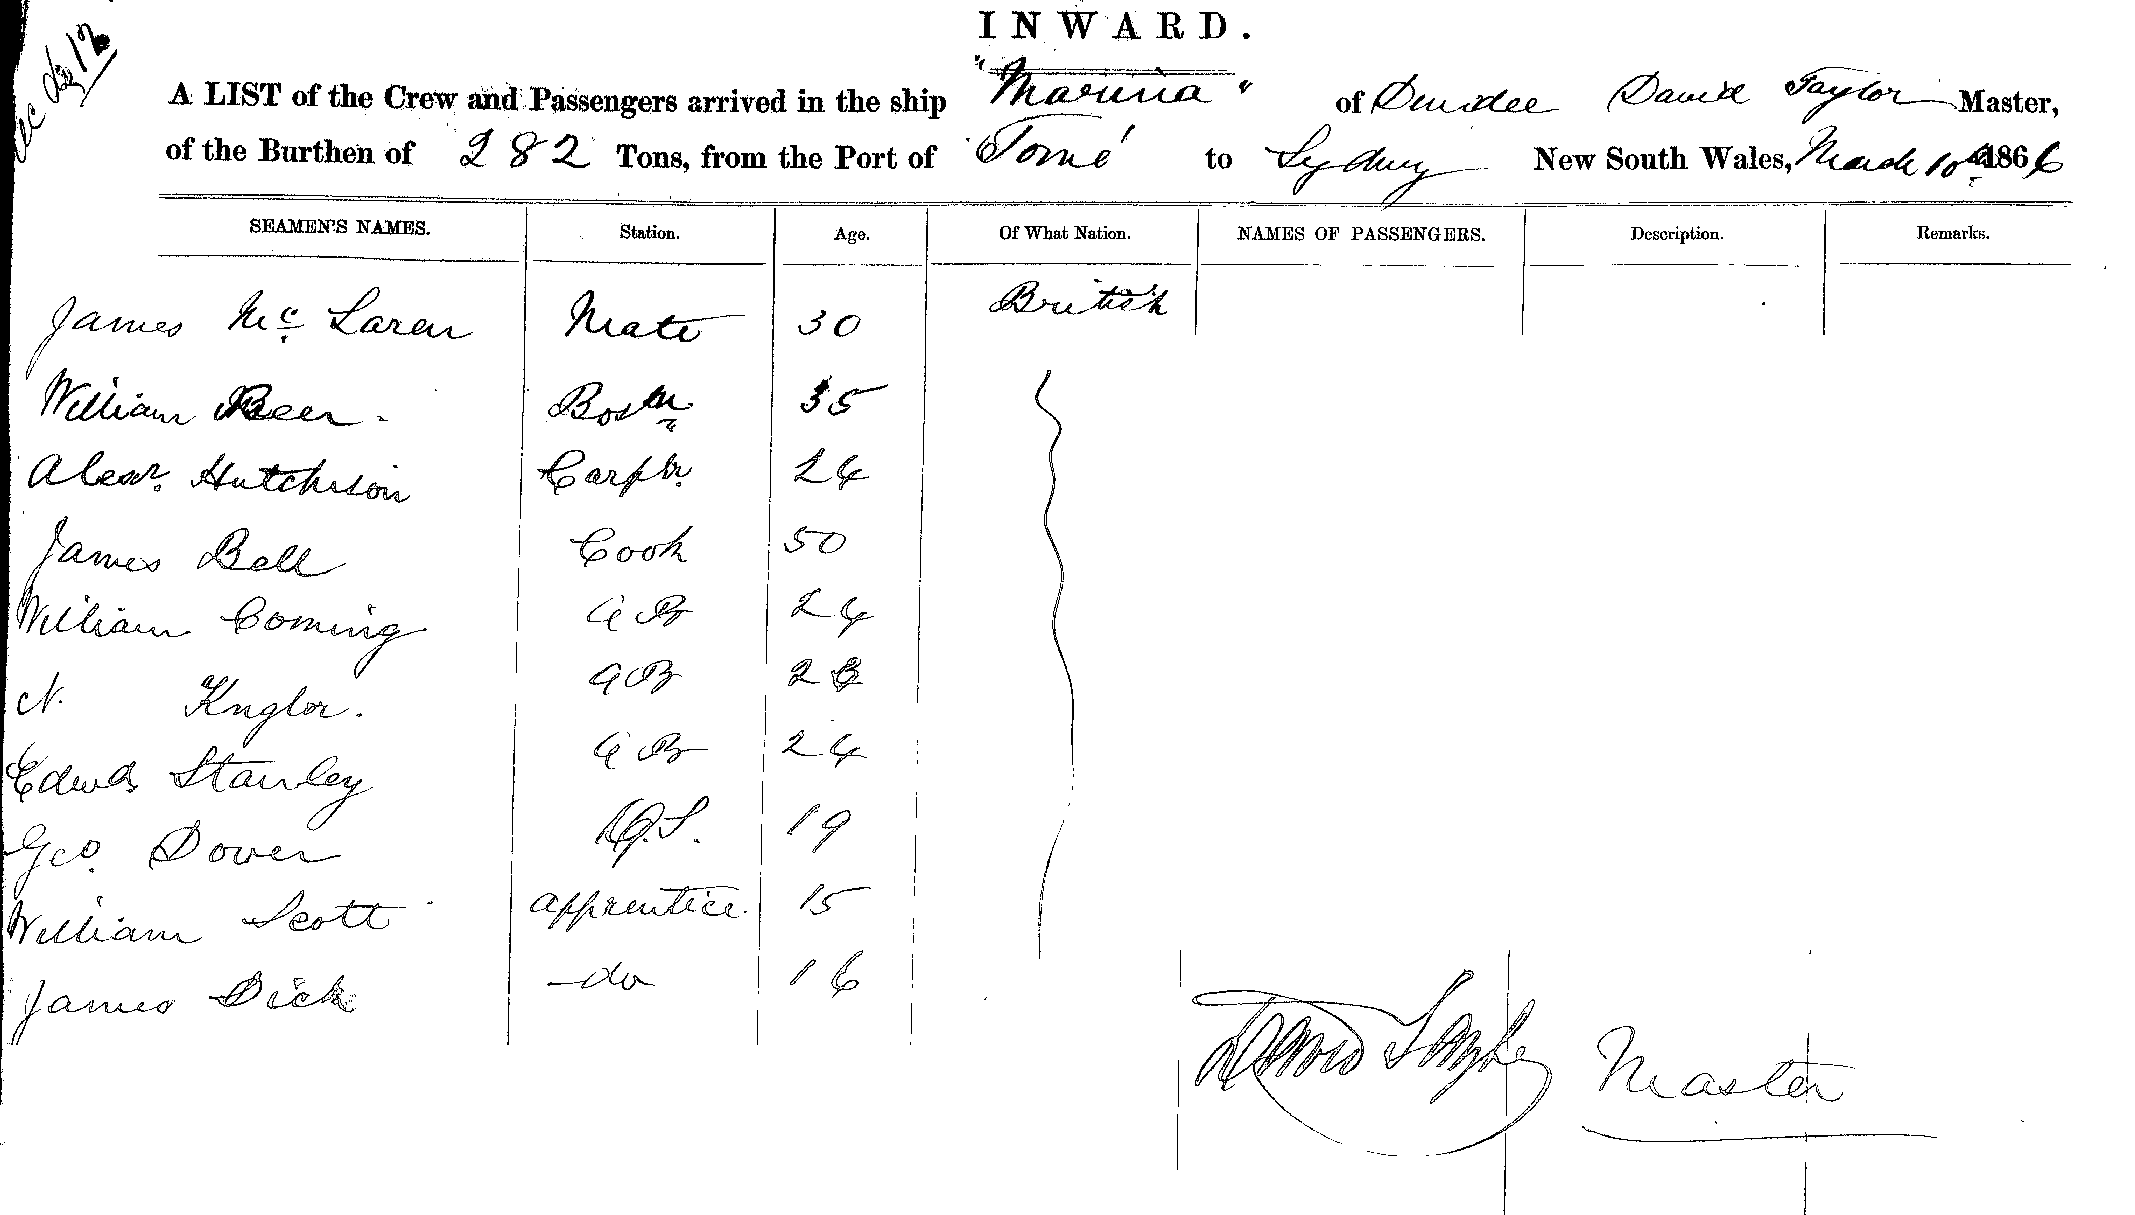 INWARD.
A LIST of the Crew and Passengers arrived in the ship "Marina" of Dundee David Taylor Master,
of the Burthen of 282 Tons, from the Port of Tomé to Sydney New South Wales, March 10th 1866
SEAMEN'S NAMES. Station. Age. Of What Nation. NAMES OF PASSENGERS. Description. Remarks.
James Mc Laren Mate 30 British
William Beer Bosn 35
Alexr. Hutchison Carptr. 24
James Bell Cook 50
William Coming AB 24
N. AB
Edwd Stanley AB 24
Geo. Dower O.S. 19
William Scott apprentice 15
James Dick do 16
David Taylor Master